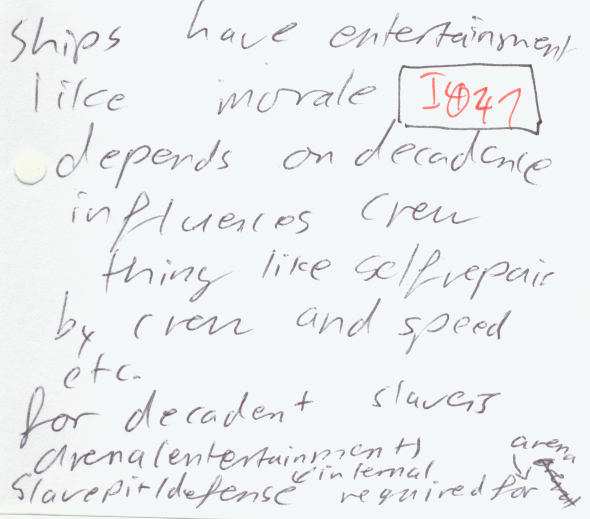 ships have entertainment
like morale I0427
depends on decadence
influences crew
thing like selfrepair
by crew and speed
etc.
for decadent slavers
arena(entertainment) arena
internal
slavepit/defense required for